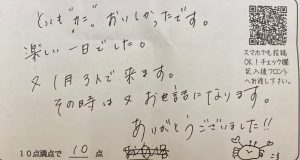 とっても"カニ"おいしかったです。
楽しい一日でした。
又1月3人で来ます。
その時は又お世話になります。
ありがとうございました!!
10点満点で 10 点
スマホでも投稿
OK!チェック欄
記入後フロント
へお渡し下さい。